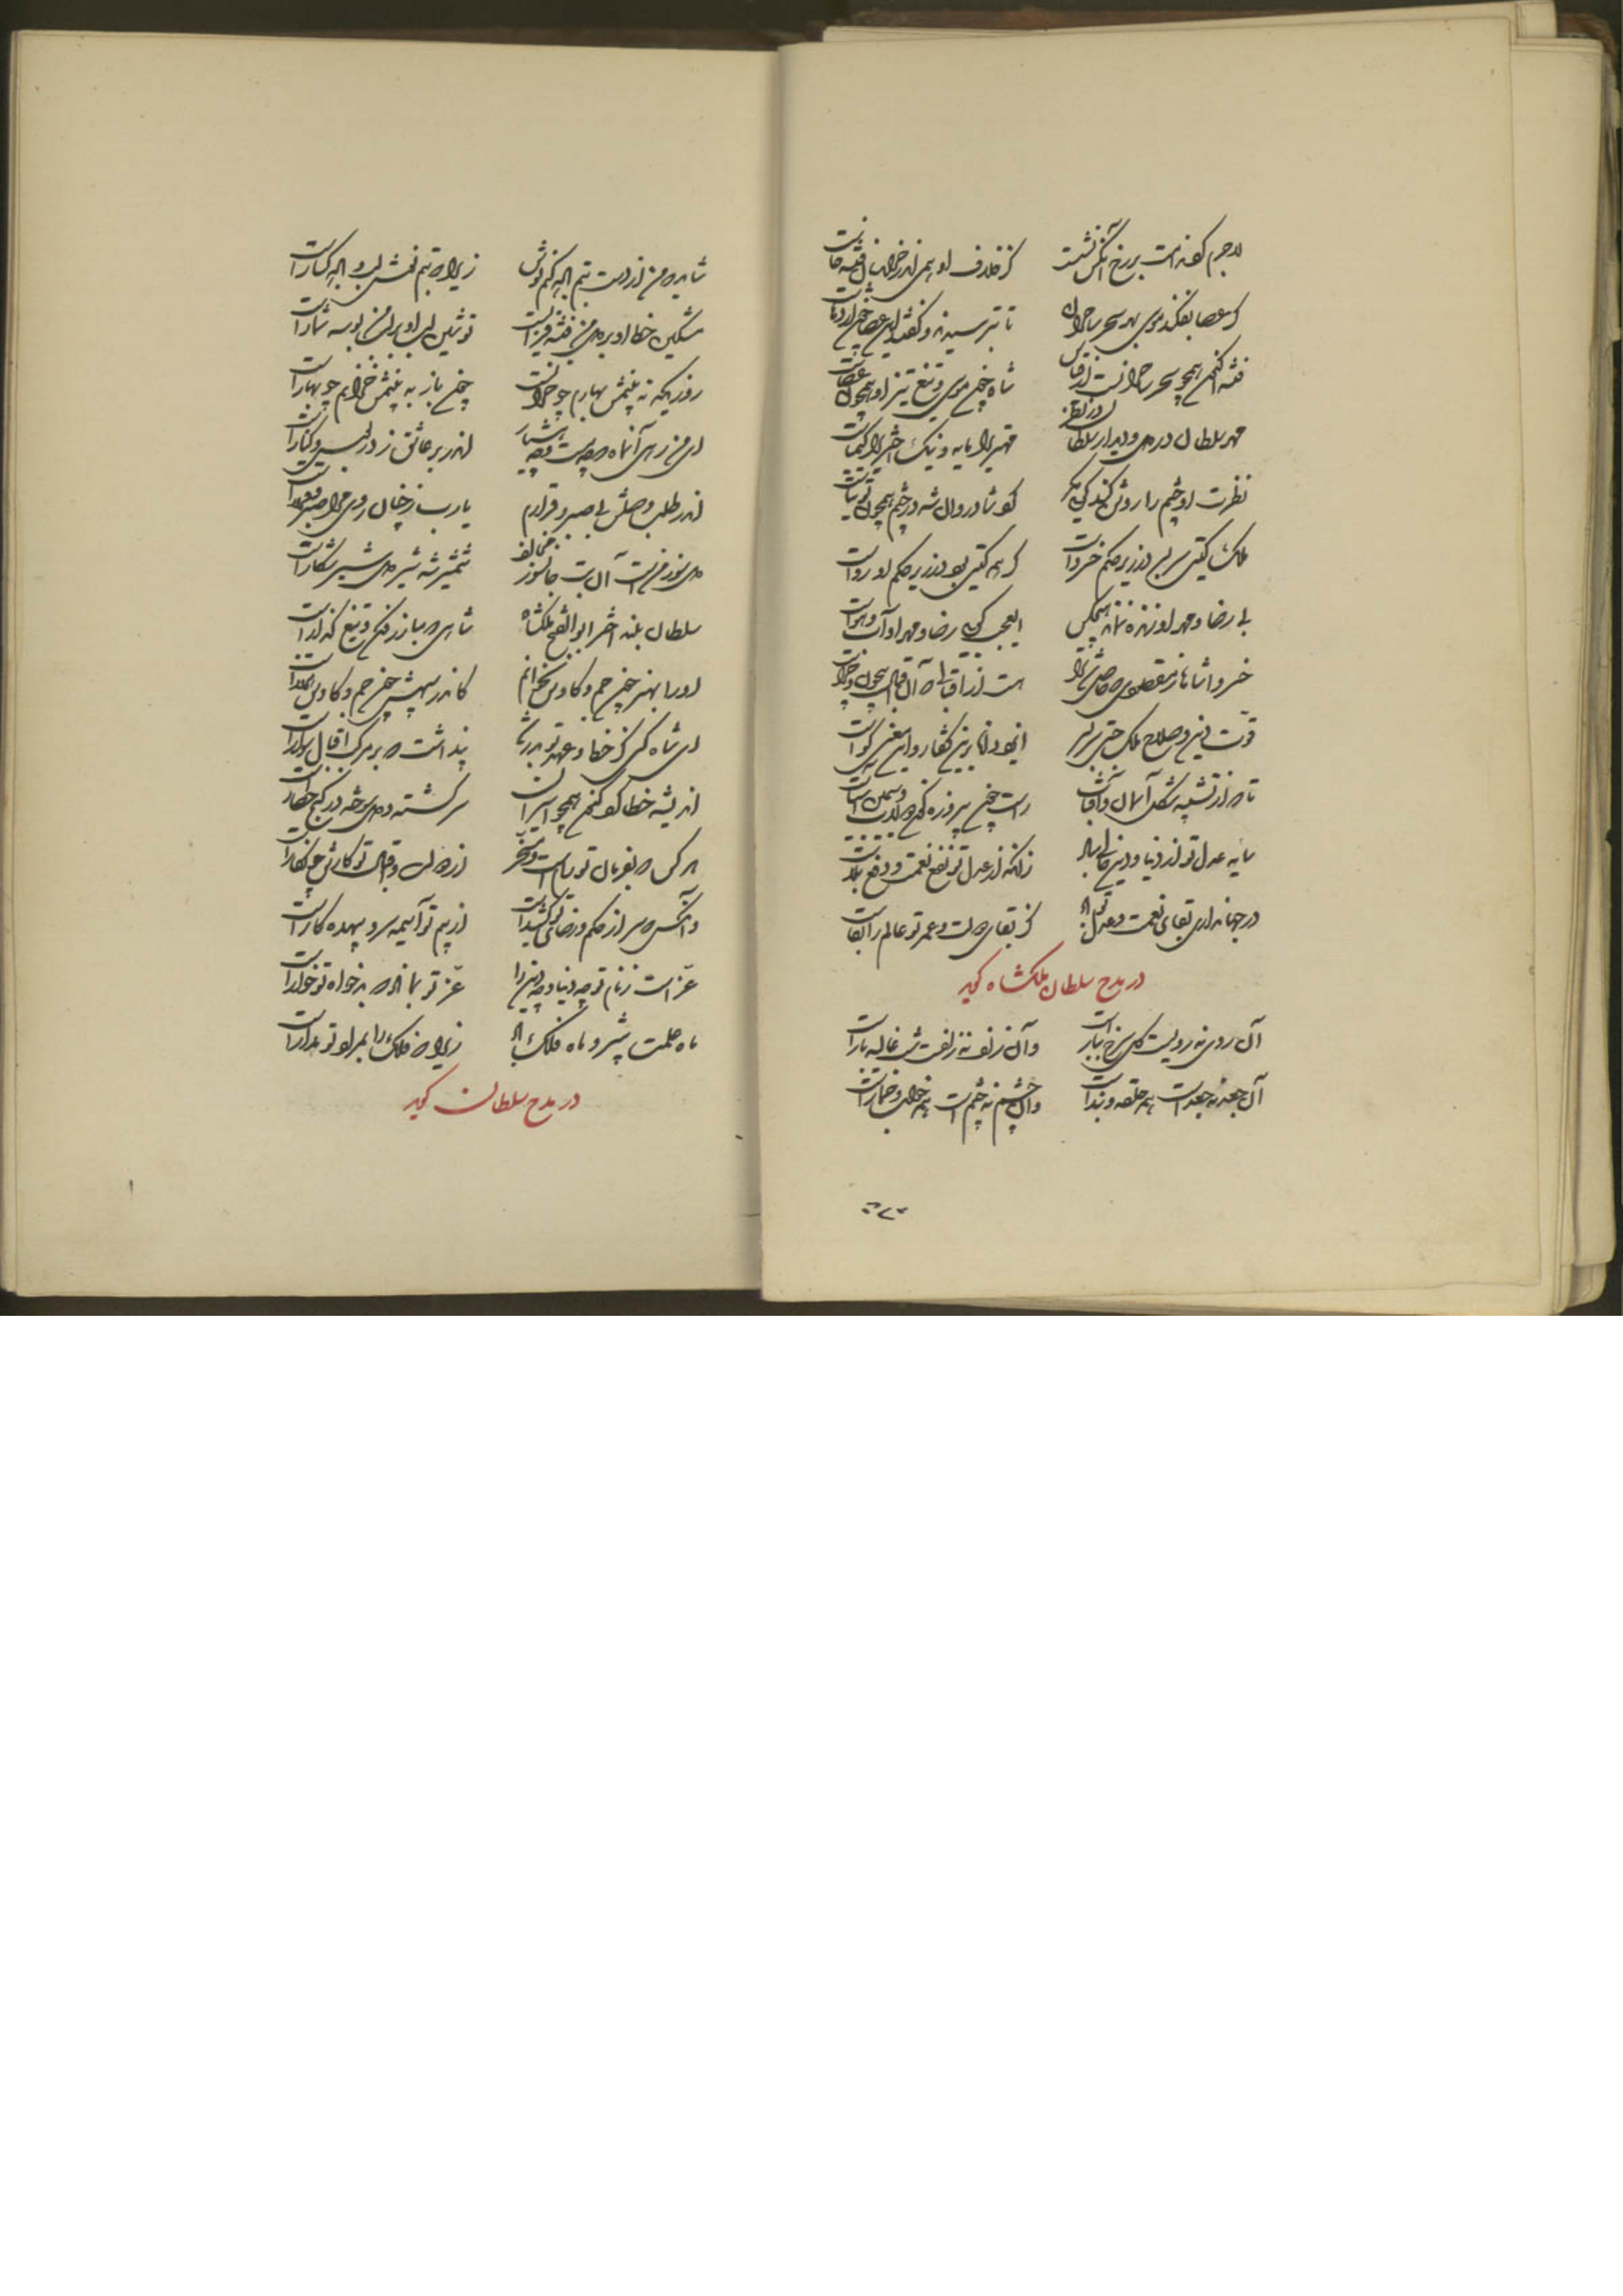 لاجرم گونه است بر رخ آنکس نشست کز خلاف او همی اندر خراسان فتنه خاست
گر عصا بفکند موسی بهر سحر ساحران تا بترسیدند و گفتند این عصا چون اژدهاست
فتنه اکنون همچو سحر ساحرانست از قیاس شاه چون موسی و تیغ تیز او همچون عصاست
مهر سلطان در دل و دیدار سلطان در نظر مهر را مایه و نیک اختر را کیمیاست
نظرت او چشم را روشن کند گویی مگر گوشا در وال شه در چشم همچون توتیاست
ملک گیتی سر بسر در زیر حکم خسرو است گر همه گیتی بود در زیر حکم او رواست
بی رضا و مهر او زنده نماند هیچکس ای عجب گویی رضا و مهر او آب و هواست
خسروا شاها ز مقصودی که حاصل شد ترا هست از اقبالی که آن اقبال بیچون و چراست
قوت دین و صلاح ملک جستی بر سر ایزد دانا برین گفتار و این معنی گواست
تا که از تشبیه شکل آسمان و آفتاب راست چون پیروزه گون و سیمگون آسیاست
سایه عدل تو اندر دنیا و دین زانکه از عدل تو نفع نعمت و دفع بلاست
در جهانداری بقای نعمت و عدل تو باد کز بقای دولت و عمر تو عالم را بقاست
در مدح سلطان ملکشاه گوید
آن روی نه رویست گل سرخ ببار است وان زلف نه زلفست شب غالیه بار است
آن جعد نه جعد است همه حلقه و بند است وان چشم نه چشم است همه خواب و خمار است
شاید که من از دست بتم لاله کنم نوش زیرا که بتم نقش لب و لاله کنار است
مشکین خط او بر دل من فتنه فزایست نوشین لب او بر لب من بوسه شمار است
روزیکه نه بینمش بهارم چو خزانست چون باز به بینمش خزانم چو بهار است
ای من رهی آنماه که مست و چه هشیار اندر بر عاشق ز در بوس و کنار است
اندر طلب وصلش بی صبر و قرارم یارب ز خیال روی مرا صبر و قرار است
دلسوز منست آن بت جانسوز مخالف شمشیر شه شیردل شیر شکار است
سلطان بلند اختر ابوالفتح ملکشاه شاهی که مبارز فکن و تیغ گذار است
او را بهنر چون جم و کاوس نخوانم کاندر سپهش چون جم و کاوس هزار است
ای شاه کسی کز خط و عهد تو بدر شد پنداشت که بر مرکب اقبال سوار است
اندیشه خطا کو کنون همچو اسیران سرگشته و دلسوخته در کنج حصار است
هر کس که بفرمان تو رامست و مسخر از دولت و اقبال تو کارش چو نگار است
وانکس که سر از حکم و رضای تو کشیده است از بیم تو آسیمه سر و بیهده کار است
عز است ز نام تو چه دنیا و چه دین را عز تو بماناد که بدخواه تو خوار است
ماه علمت پیشرو ماه فلک باد زیرا که فلک را بمراد تو مدار است
در مدح سلطان گوید